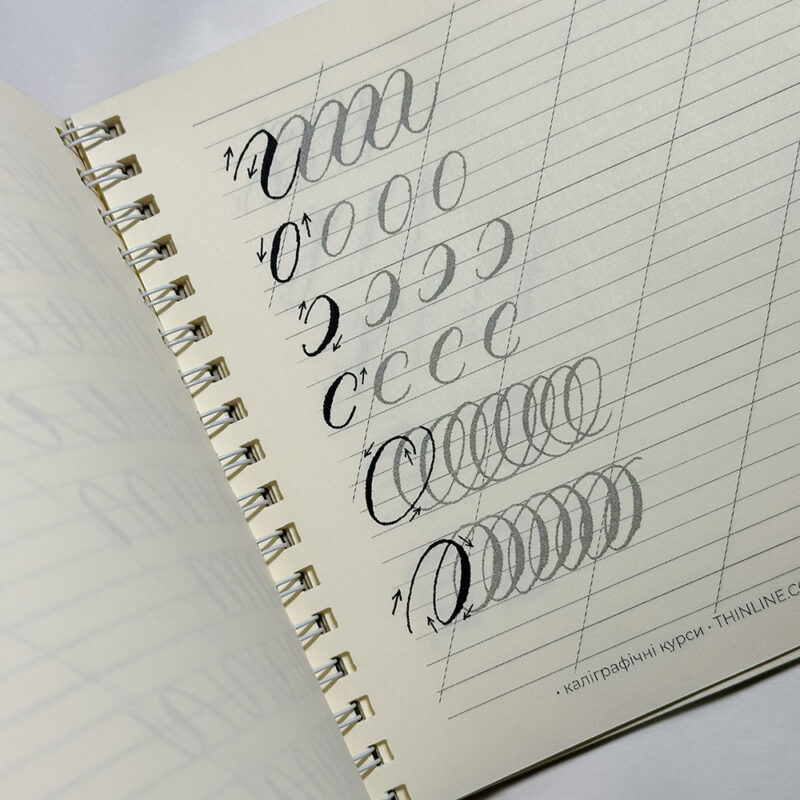 • каліграфічні курси • THINLINE.CO